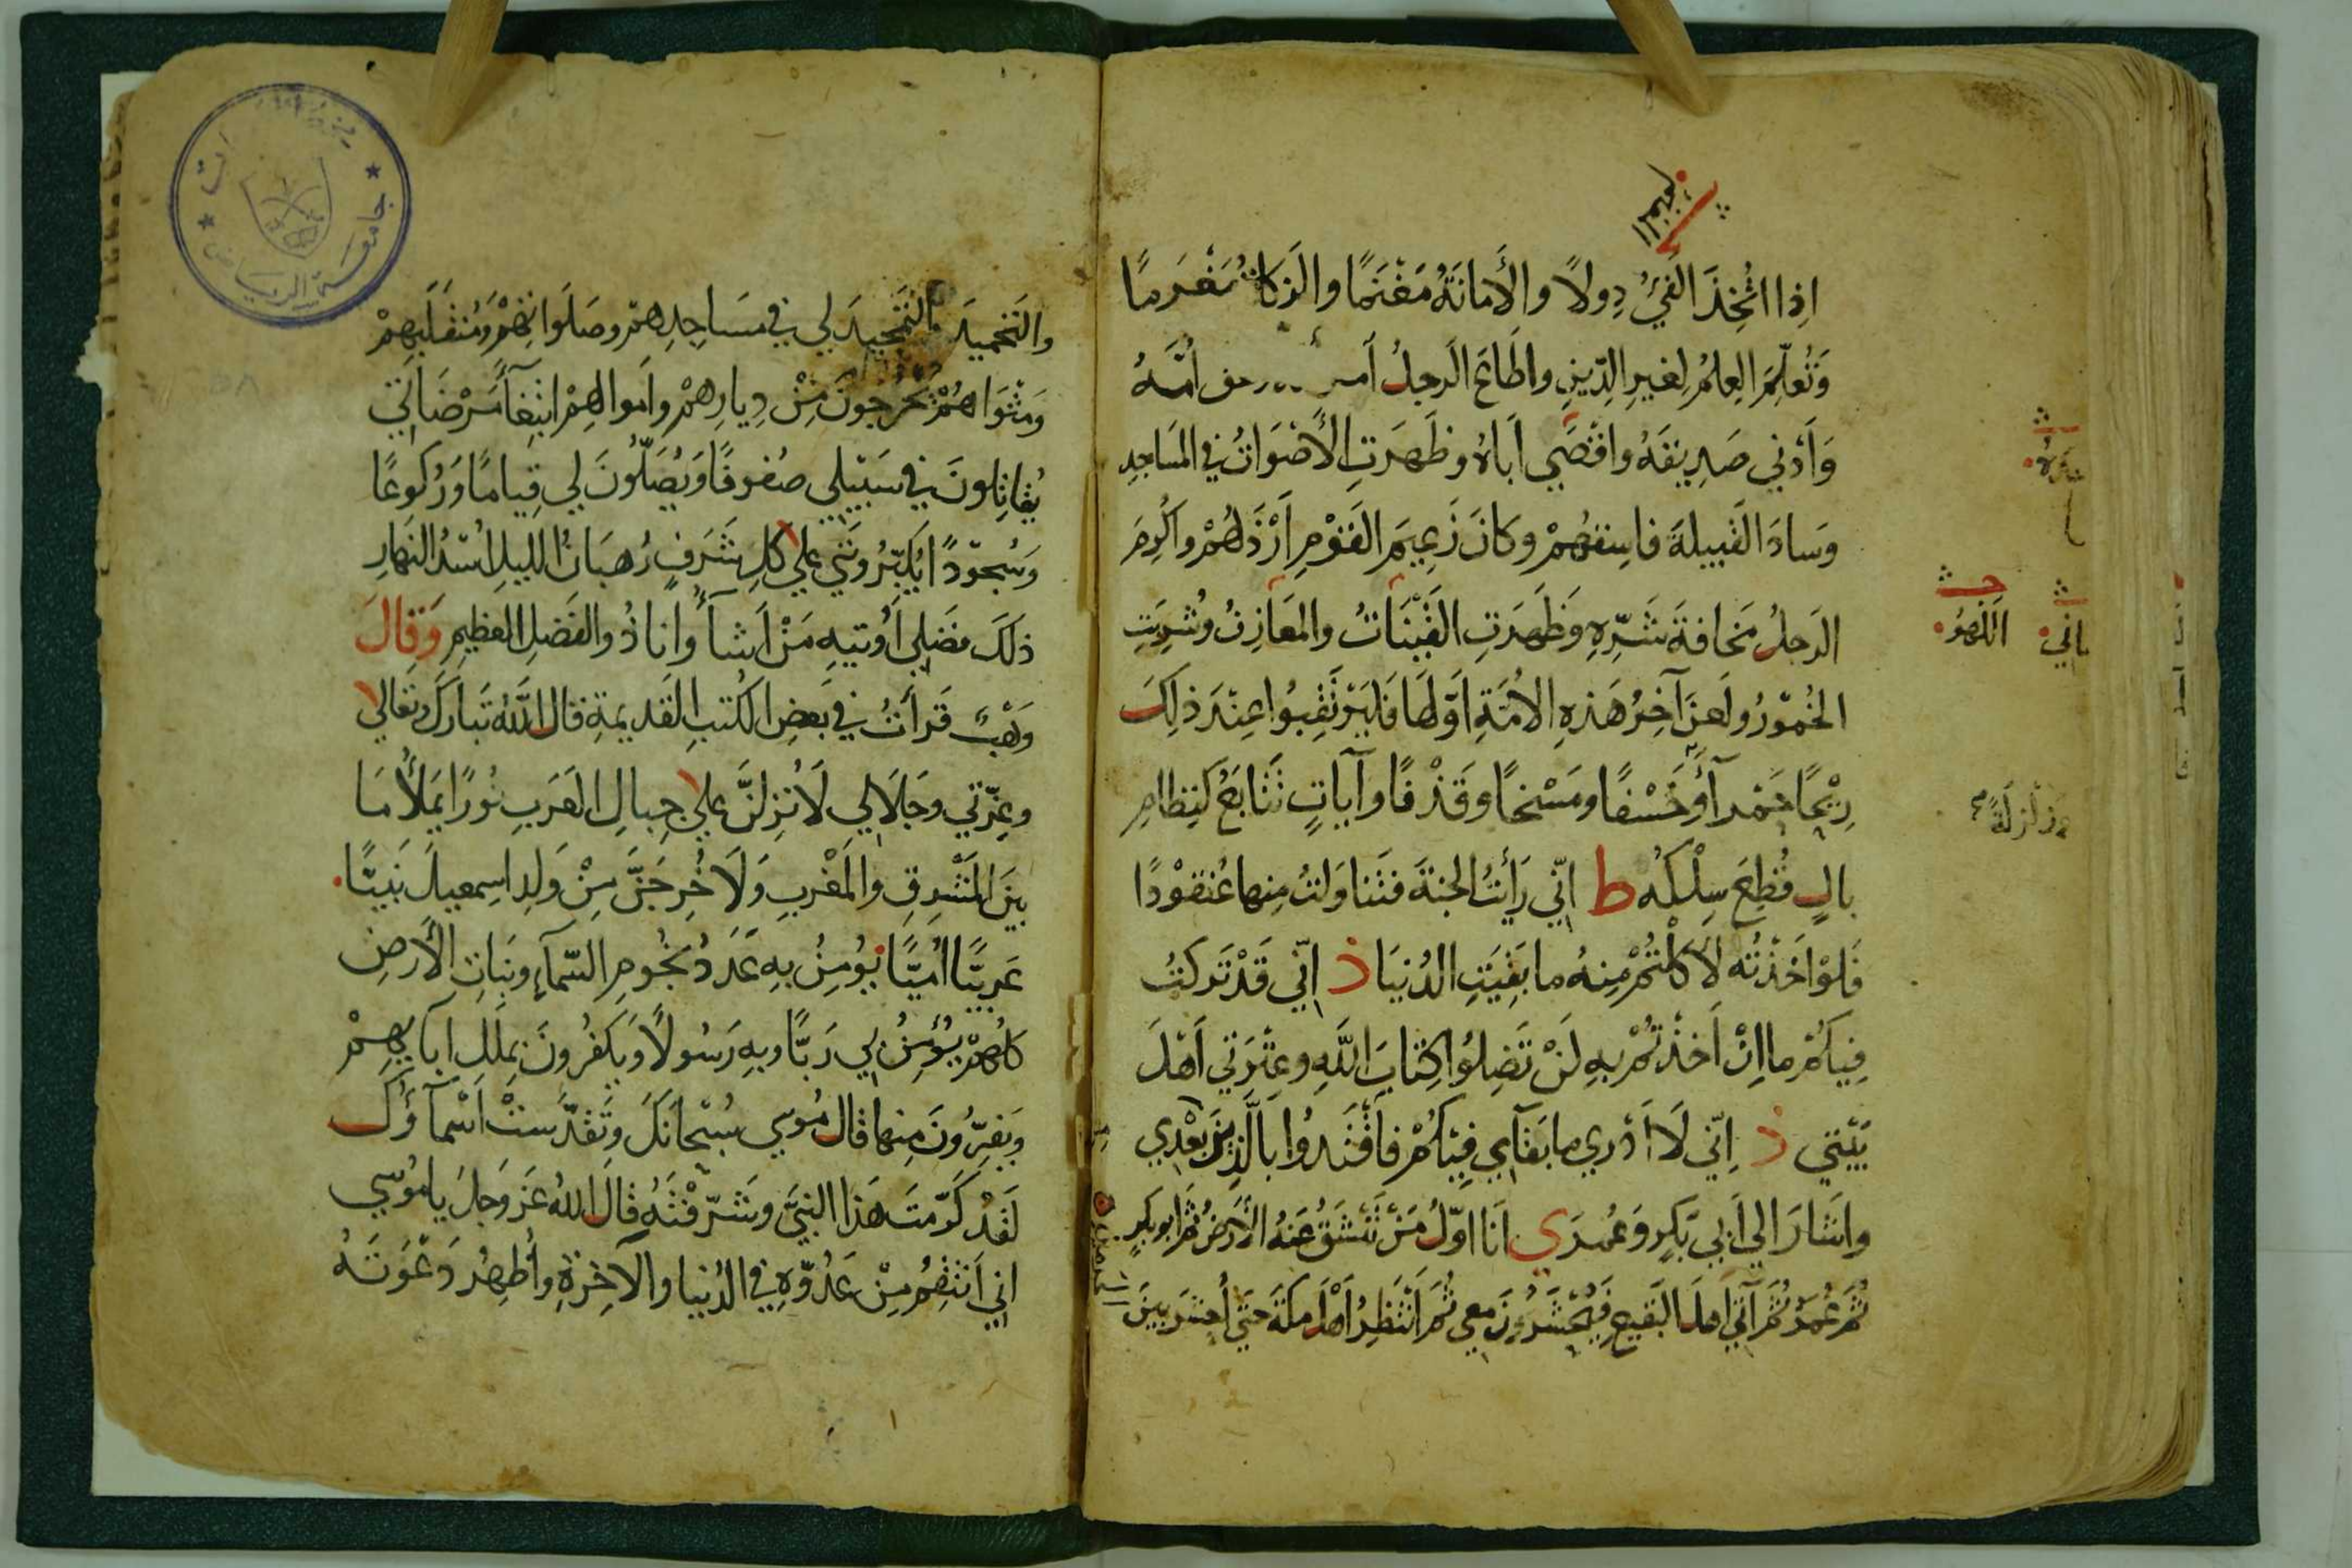 اِذا اتُّخِذَ الفَيْءُ دِولاً والأَمانَةُ مَغْنَمًا والزَكاةُ مَغْرَمًا
وَتُعلِّمَ العِلمُ لِغيرِ الدِّينِ واطَاعَ الرجلُ امر عق اُمَّهُ
وَاَدْني صَدِيقَهُ واقْصَي اَباهُ وظَهَرَتِ الأَصْوَاتُ في المَساجِدِ
وَسادَ القَبيلةَ فاسِقهُمْ وكانَ زَعِيمَ القَوْمِ اَرْذَلهُمْ واكْرِمَ
الرجلُ مَخافةَ شَرِّهِ وَظَهَرَتِ القَيْنَاتُ والمَعَازِفُ وشُرِبَتِ
الخُمُورُ ولَعنَ آخِرُ هَذهِ الاُمَّةِ اَوَّلهَا فَليَرْتَقِبُوا عِنْدَ ذلِكَ
رِيْحًا حَمْرآءَ وخَسْفًا ومَسْخًا وَقَذْفًا وآياتٍ تَتَابَعُ كَنِظامٍ
بالٍ قُطِعَ سِلْكُه ط اِنّي رَأَيتُ الجنةَ فتَناوَلتُ مِنها عُنْقوْدًا
فَلوْ اخَذْتُه لاَكَلْتُمْ مِنهُ ما بَقِيَتِ الدُنيَا ذ اِنّي قَدْ تَركتُ
فِيكُمْ ما اِنْ اَخذْتُمْ بِهِ لَنْ تَضِلوُا كِتابَ اللَّهِ وعِتْرَتي اَهْلَ
بَيْتي ذ اِنّي لَا اَدْري ما بَقآءي فِيْكُمْ فاقْتَدُوا بالَّذِينَ بَعْدي
واشَارَ الي اَبي بَكرٍ وَعُمرَ ي اَنَا اوّلُ مَنْ تَنْشَقُّ عَنهُ الاَرْضُ ثُمَّ ابو بكرٍ
ثُمَّ عُمَرُ ثُمَّ آتي اَهلَ البَقيعِ فَيُحْشَرُونَ معي ثُمَّ اَنْتَظِرُ اَهْلَ مكةَ حتَي اُحشَر بينَ
اللهو
وزَلزلَةً صح
والتَحْمِيدَ والتَّمْجِيدَ لي في مَسَاجِدِهمْ وصَلَوَاتِهِمْ وَمُنقَلَبِهِمْ
وَمَثْوَاهُمْ يَخْرُجونَ مِنْ دِيارِهمْ واَموالهِمْ ابْتِغآءَ مَرْضَاتي
يُقاتِلونَ في سَبيْلِي صُفوفًا وَيُصَلُّونَ لي قِيامًا وَرُكوعًا
وَسُجوّدًا يُكبِّرُونَني علي كلِ شَرَفٍ رُهبَانُ الليلِ اُسْدُ النَهارِ
ذلكَ فضَلِي اُوتيهِ مَنْ اَشآءُ وانا ذُو الفَضلِ العظيمِ وَقالَ
وَهْبٌ قَرأتُ في بَعضِ الكُتبِ القَديمةِ قال اللهُ تَبارَكَ وتَعَالي
وعِزّتي وجَلَالي لَاُنْزِلنَّ علي جِبالِ العَرَبِ نوُرًا يَملأُ مَا
بينَ المَشْرِقِ والمَغْرِبِ وَلَاُخْرِجَنَّ مِنْ وَلدِ اسِمعيلَ نَبيًّا
عَربيًّا اُميًّا يُؤمِنُ بهِ عَدَدُ نجُومِ السَّمآءِ ونَباتِ الأَرْضِ
كلهُمْ يُؤْمِنُ بي رَبًّا وبِهِ رَسُولاً وَيَكفُرُونَ بِمِللِ ابآئِهِمْ
وَيفِرُّونَ مِنها قال مُوسي سُبْحانَكَ وتَقدَّسَتْ اَسْمآؤُكَ
لَقَدْ كَرّمتَ هَذا النبيَّ وشَرّفْتَهُ قالَ اللهُ عَزَ وجَلَ يا مُوسي
اِني اَنتقِمُ مِنْ عَدُوّهِ في الدُنيا والآخِرةِ واُظهِرُ دَعْوَتَهُ
جامعة الرياض